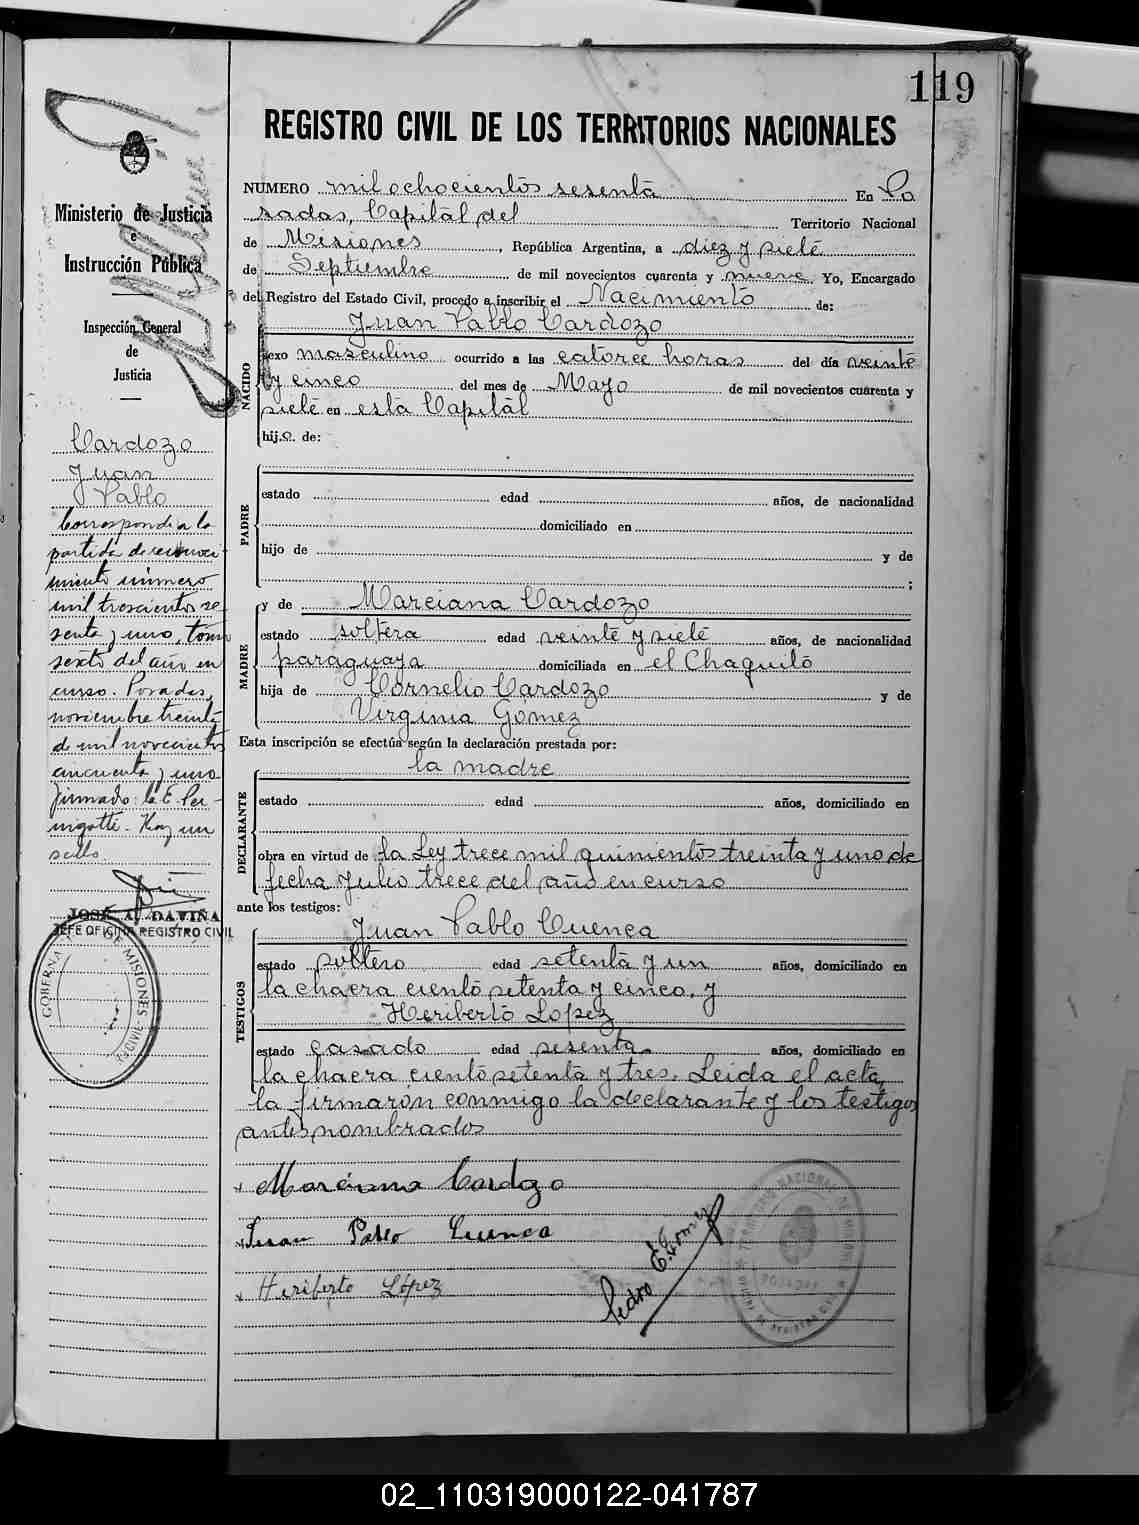 119
REGISTRO CIVIL DE LOS TERRITORIOS NACIONALES
NUMERO mil ochocientos sesenta En Po
sadas, Capital del Territorio Nacional
de Misiones, República Argentina, a diez y siete
de Septiembre de mil novecientos cuarenta y nueve Yo, Encargado
del Registro del Estado Civil, procedo a inscribir el Nacimiento de:
Juan Pablo Cardozo
NACIDO
sexo masculino ocurrido a las catorce horas del día veinte
y cinco del mes de Mayo de mil novecientos cuarenta y
siete en esta Capital
hijo. de:
PADRE
estado edad años, de nacionalidad
domiciliado en
hijo de y de
;
MADRE
y de Marciana Cardozo
estado soltera edad veinte y siete años, de nacionalidad
paraguaya domiciliada en el Chaquito
hija de Cornelio Cardozo y de
Virginia Gómez
Esta inscripción se efectúa según la declaración prestada por:
la madre
DECLARANTE
estado edad años, domiciliado en
obra en virtud de la Ley trece mil quinientos treinta y uno de
fecha Julio trece del año en curso
ante los testigos:
Juan Pablo Cuenca
TESTIGOS
estado soltero edad setenta y un años, domiciliado en
la chacra ciento setenta y cinco, y
Heriberto Lopez
estado casado edad sesenta años, domiciliado en
la chacra ciento setenta y tres. Leida el acta,
la firmaron conmigo la declarante y los testigos
antes nombrados
Marciana Cardozo
Juan Pablo Cuenca
Heriberto López
Pedro E. Gomez
Ministerio de Justicia
e
Instrucción Pública
Inspección General
de
Justicia
Cardozo
Juan
Pablo
Corresponde a la
partida de reconoci-
miento número
mil trescientos se-
senta y uno, tomo
sexto del año en
curso. Posadas,
noviembre treinta
de mil novecientos
cincuenta y uno
firmado: C. E. Per-
nigotti. Hay un
sello.
JOSE A. DAVIÑA
JEFE OFICINA REGISTRO CIVIL
02_110319000122-041787